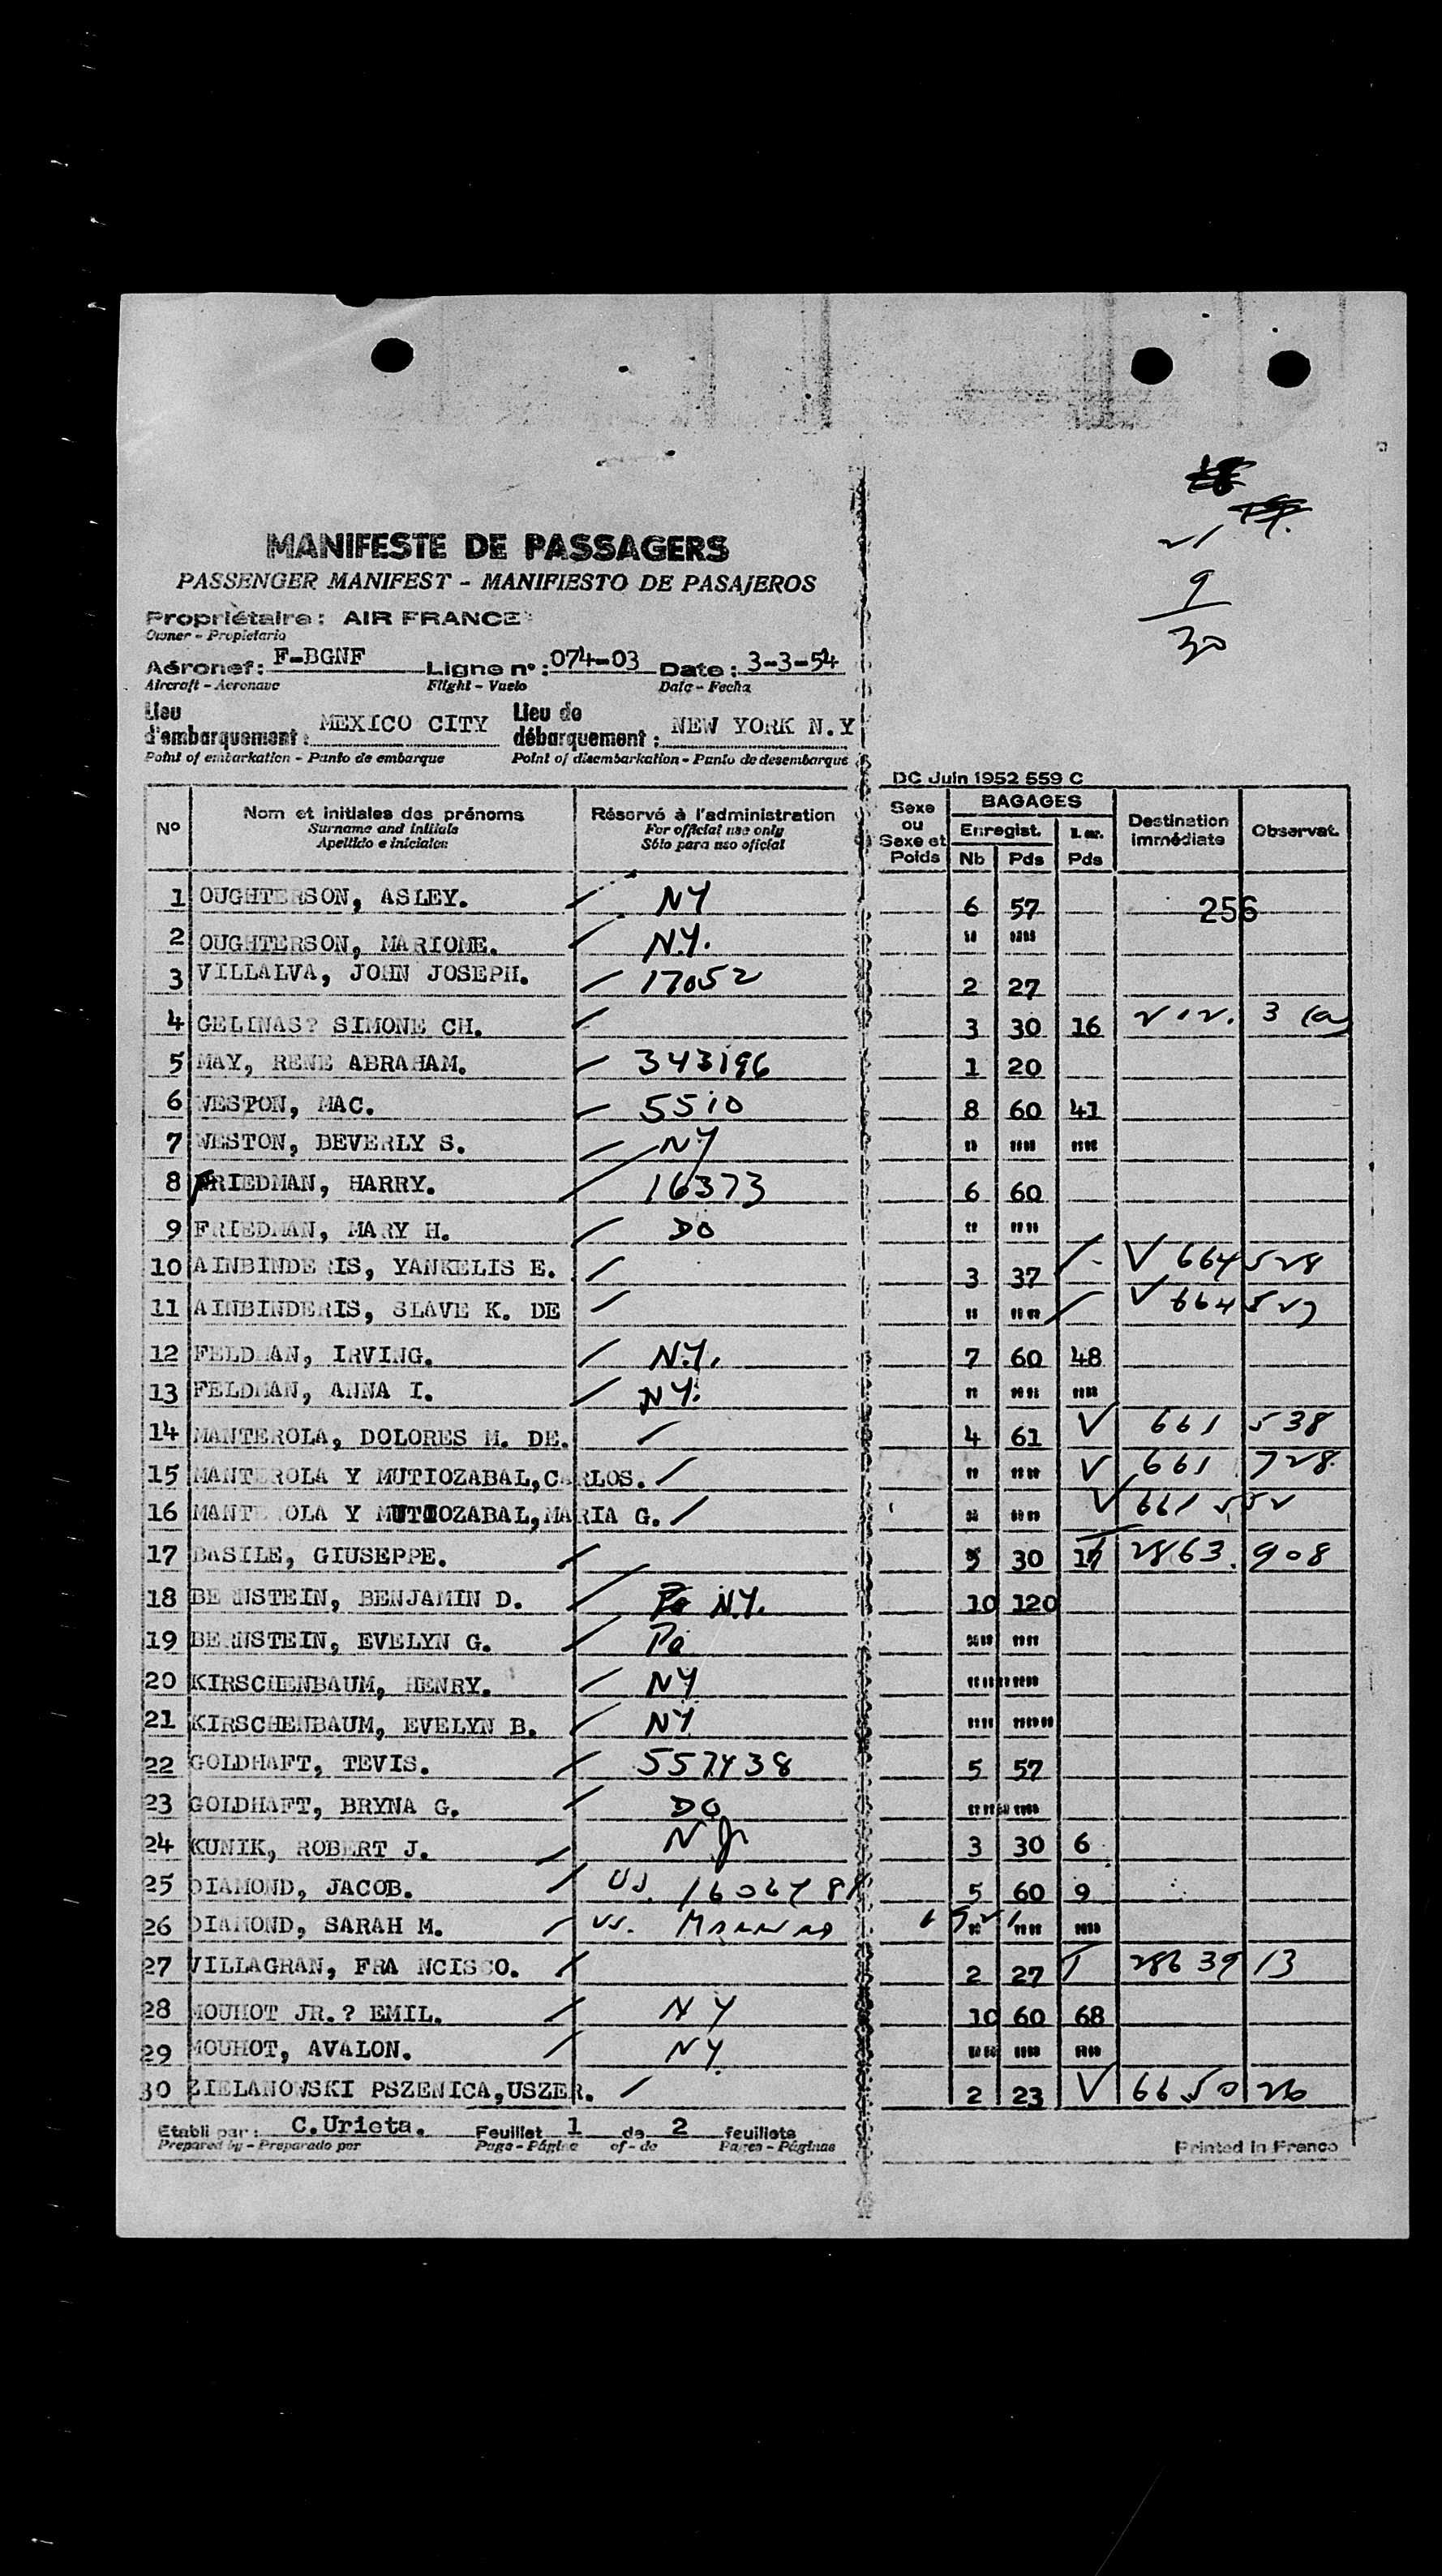 21
9
30
MANIFESTE DE PASSAGERS
PASSENGER MANIFEST - MANIFIESTO DE PASAJEROS
Propriétaire: AIR FRANCE
Owner - Propietario
Aéronef: F-BGNF Ligne n°: 074-03 Date: 3-3-54
Aircraft - Aeronave Flight - Vuelo Date - Fecha
Lieu d'embarquement: MEXICO CITY Lieu de débarquement: NEW YORK N.Y
Point of embarkation - Punto de embarque Point of disembarkation - Punto de desembarque
DC Juin 1952 559 C
N° Nom et initiales des prénoms Réservé à l'administration Sexe ou Sexe et Poids BAGAGES Destination immédiate Observat.
Surname and initials For official use only Enregist.
Apellido e iniciales Sólo para uso oficial Nb Pds Pds
1 OUGHTERSON, ASLEY. NY 6 57 256
2 OUGHTERSON, MARIOME. N.Y. " ""
3 VILLALVA, JOHN JOSEPH. 17052 2 27
4 GELINAS? SIMONE CH. 3 30 16 3
5 MAY, RENE ABRAHAM. 343196 1 20
6 WESTON, MAC. 5510 8 60 41
7 WESTON, BEVERLY S. NY " "" ""
8 FRIEDMAN, HARRY. 16373 6 60
9 FRIEDMAN, MARY H. DO " ""
10 AINBINDERIS, YANKELIS E. 3 37 V 664 528
11 AINBINDERIS, SLAVE K. DE " "" V 664 527
12 FELDMAN, IRVING. N.Y. 7 60 48
13 FELDMAN, ANNA I. NY. " "" ""
14 MANTEROLA, DOLORES M. DE. 4 61 V 661 538
15 MANTEROLA Y MUTIOZABAL,CARLOS. " "" V 661 728
16 MANTEROLA Y MUTIOZABAL,MARIA G. " "" V 661 552
17 BASILE, GIUSEPPE. 5 30 17 2863.908
18 BERNSTEIN, BENJAMIN D. N.Y. 10 120
19 BERNSTEIN, EVELYN G. Pa "" ""
20 KIRSCHENBAUM, HENRY. NY """ ""
21 KIRSCHENBAUM, EVELYN B. NY "" """
22 GOLDHAFT, TEVIS. 557438 5 57
23 GOLDHAFT, BRYNA G. DO "" ""
24 KUNIK, ROBERT J. NJ 3 30 6
25 DIAMOND, JACOB. US. 5 60 9
26 DIAMOND, SARAH M. US. " "" ""
27 VILLAGRAN, FRA NCISCO. 2 27 T 28639 13
28 MOUHOT JR.? EMIL. NY 10 60 68
29 MOUHOT, AVALON. NY. "" "" ""
30 ZIELANOWSKI PSZENICA,USZER. 2 23 V 6650 26
Etabli par: C.Urieta. Feuillet 1 de 2 feuillets
Prepared by - Preparado por Page - Página of - de Pages - Páginas
Printed in France